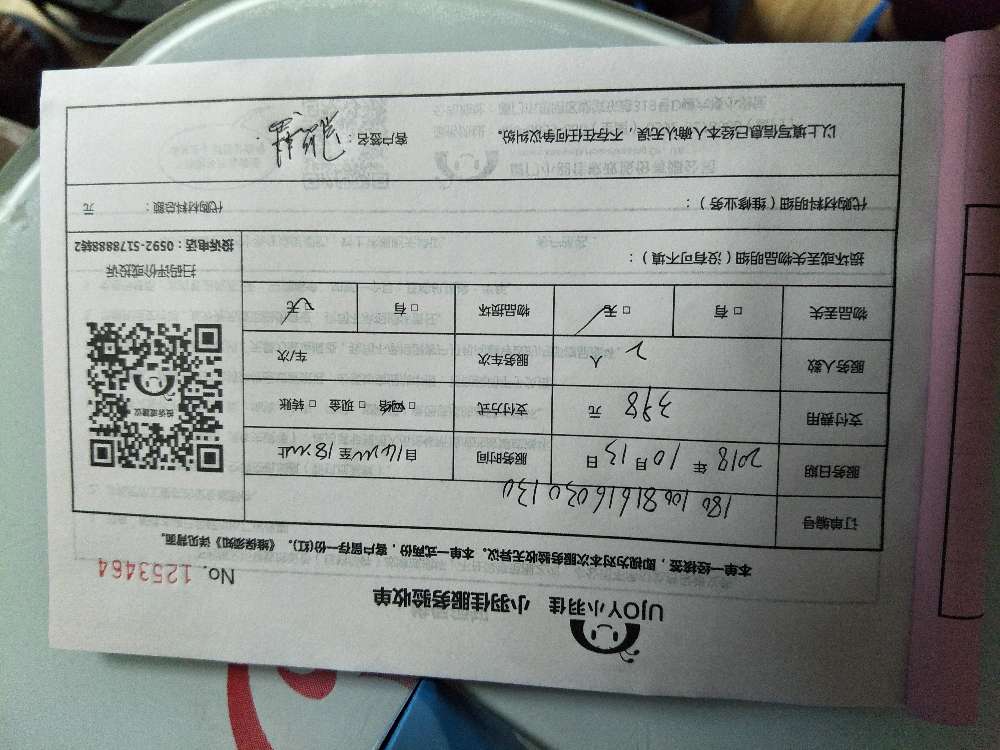 UJOY小羽佳 小羽佳服务验收单
No. 1253464
本单一经核签，即视为对本次服务验收无异议。本单一式两份，客户留存一份(红)。《维保须知》详见背面。
订单编号 18010081616030130
服务日期 2018 年 10 月 13 日 服务时间 自14:00至18:00止
支付费用 398 元 支付方式 □网络 □现金 □转账
服务人数 2 人 服务车次 车/次
物品丢失 □有 □无 物品损坏 □有 □无
投诉或建议
扫码评价或投诉
投诉电话：0592-5178888转2
损坏或丢失物品明细（没有可不填）：
代购材料明细（维修业务）： 代购材料总额： 元
以上填写信息已经本人确认无误，不存在任何争议纠纷。 客户签名：